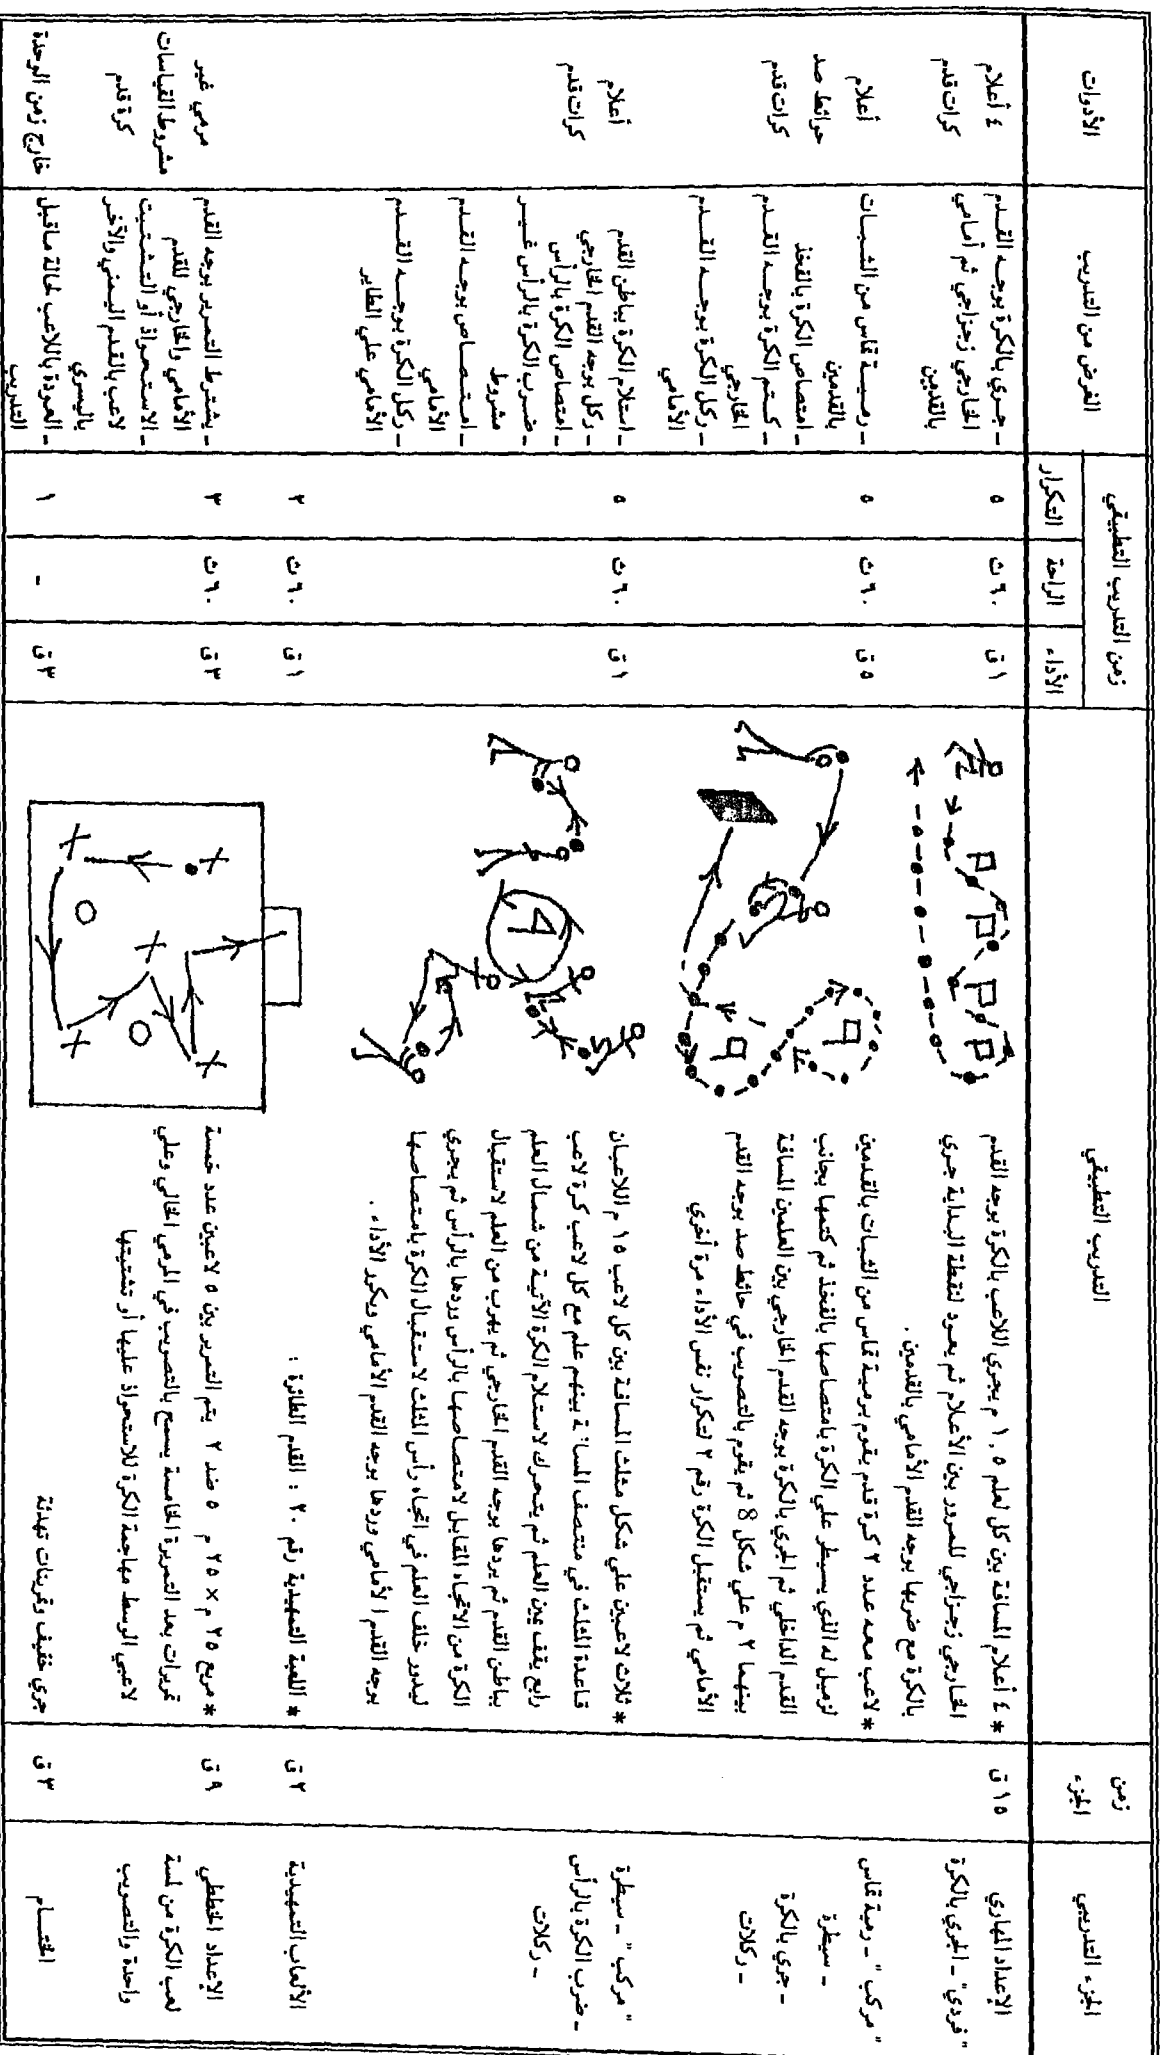 الجزء التدريبي
زمن الجزء
التدريب التطبيقي
زمن التدريب التطبيقي
الأداء
الراحة
التكرار
الغرض من التدريب
الأدوات
الإعداد المهاري
"فردي" - الجري بالكرة
١٥ ق
* ٤ أعلام المسافة بين كل لعلم ١,٥ م يجري اللاعب بالكرة بوجه القدم
الخارجي زجزاجي للمرور بين الأعلام ثم يعود لنقطة البداية جري
بالكرة مع ضربها بوجه القدم الأمامي بالقدمين .
١ ق
٦٠ ث
٥
- جري بالكرة بوجه القدم
الخارجي زجزاجي ثم أمامي
بالقدمين
٤ أعلام
كرات قدم
"مركب" - رمية تماس
- سيطرة
- جري بالكرة
- ركلات
* لاعب معه عدد ٢ كرة قدم يقوم برمية تماس من الثبات بالقدمين
لزميل له الذي يسيطر علي الكرة بامتصاصها بالفخذ ثم كتمها بجانب
القدم الداخلي ثم الجري بالكرة بوجه القدم الخارجي بين العلمين المسافة
بينهما ٢ م علي شكل 8 ثم يقوم بالتصويب في حائط صد بوجه القدم
الأمامي ثم يستقبل الكرة رقم ٢ لتكرار نفس الأداء مرة أخري
٥ ق
٦٠ ث
٥
- رميـة تماس من الثبات
بالقدمين
- امتصاص الكرة بالفخذ
- كتم الكرة بوجه القدم
الخارجي
- ركل الكرة بوجه القدم
الأمامي
أعلام
حوائط صد
كرات قدم
"مركب" - سيطرة
- ضرب الكرة بالرأس
- ركلات
* ثلاث لاعبين علي شكل مثلث المسافة بين كل لاعب ١٥ م اللاعبان
قاعدة المثلث في منتصف المسافة بينهم علم مع كل لاعب كرة لاعب
رابع يقف يمين العلم ثم يتحرك لاستلام الكرة الآتية من شمال العلم
بباطن القدم ثم يردها بوجه القدم الخارجي ثم يهرب من العلم لاستقبال
الكرة من الاتجاه المقابل لامتصاصها بالرأس وردها بالرأس ثم يجري
ليدور خلف العلم في اتجاه رأس المثلث لاستقبال الكرة بامتصاصها
بوجه القدم الأمامي وردها بوجه القدم الأمامي ويكرر الأداء .
١ ق
٦٠ ث
٥
- استلام الكرة بباطن القدم
- ركل بوجه القدم الخارجي
- امتصاص الكرة بالرأس
- ضرب الكرة بالرأس غير
مشروط
- امتصاص بوجه القدم
الأمامي
- ركل الكرة بوجه القدم
الأمامي علي الطاير
أعلام
كرات قدم
الألعاب التمهيدية
٢ ق
* اللعبة التمهيدية رقم ٢٠ : القدم الطائرة :
١ ق
٦٠ ث
٢
الإعداد الخططي
لعب الكرة من لمسة
واحدة والتصويب
٩ ق
* مربع ٢٥ م × ٢٥ م ٥ ضد ٢ يتم التمرير بين ٥ لاعبين عدد خمسة
تمريرات بعد التمريرة الخامسة يسمح بالتصويب في المرمي الخالي وعلي
لاعبي الوسط مهاجمة الكرة للاستحواذ عليها أو تشتيتها
٣ ق
٦٠ ث
٣
- يشترط التمرير بوجه القدم
الأمامي والخارجي للقدم
- الاستحواذ أو التشتيت
لاعب بالقدم اليمني والآخر
باليسري
مرمي غير
مشروط القياسات
كرة قدم
الختـام
٣ ق
جري خفيف وتمرينات تهدئة
٣ ق
-
١
- العودة باللاعب لحالة ماقبل
التدريب
خارج زمن الوحدة